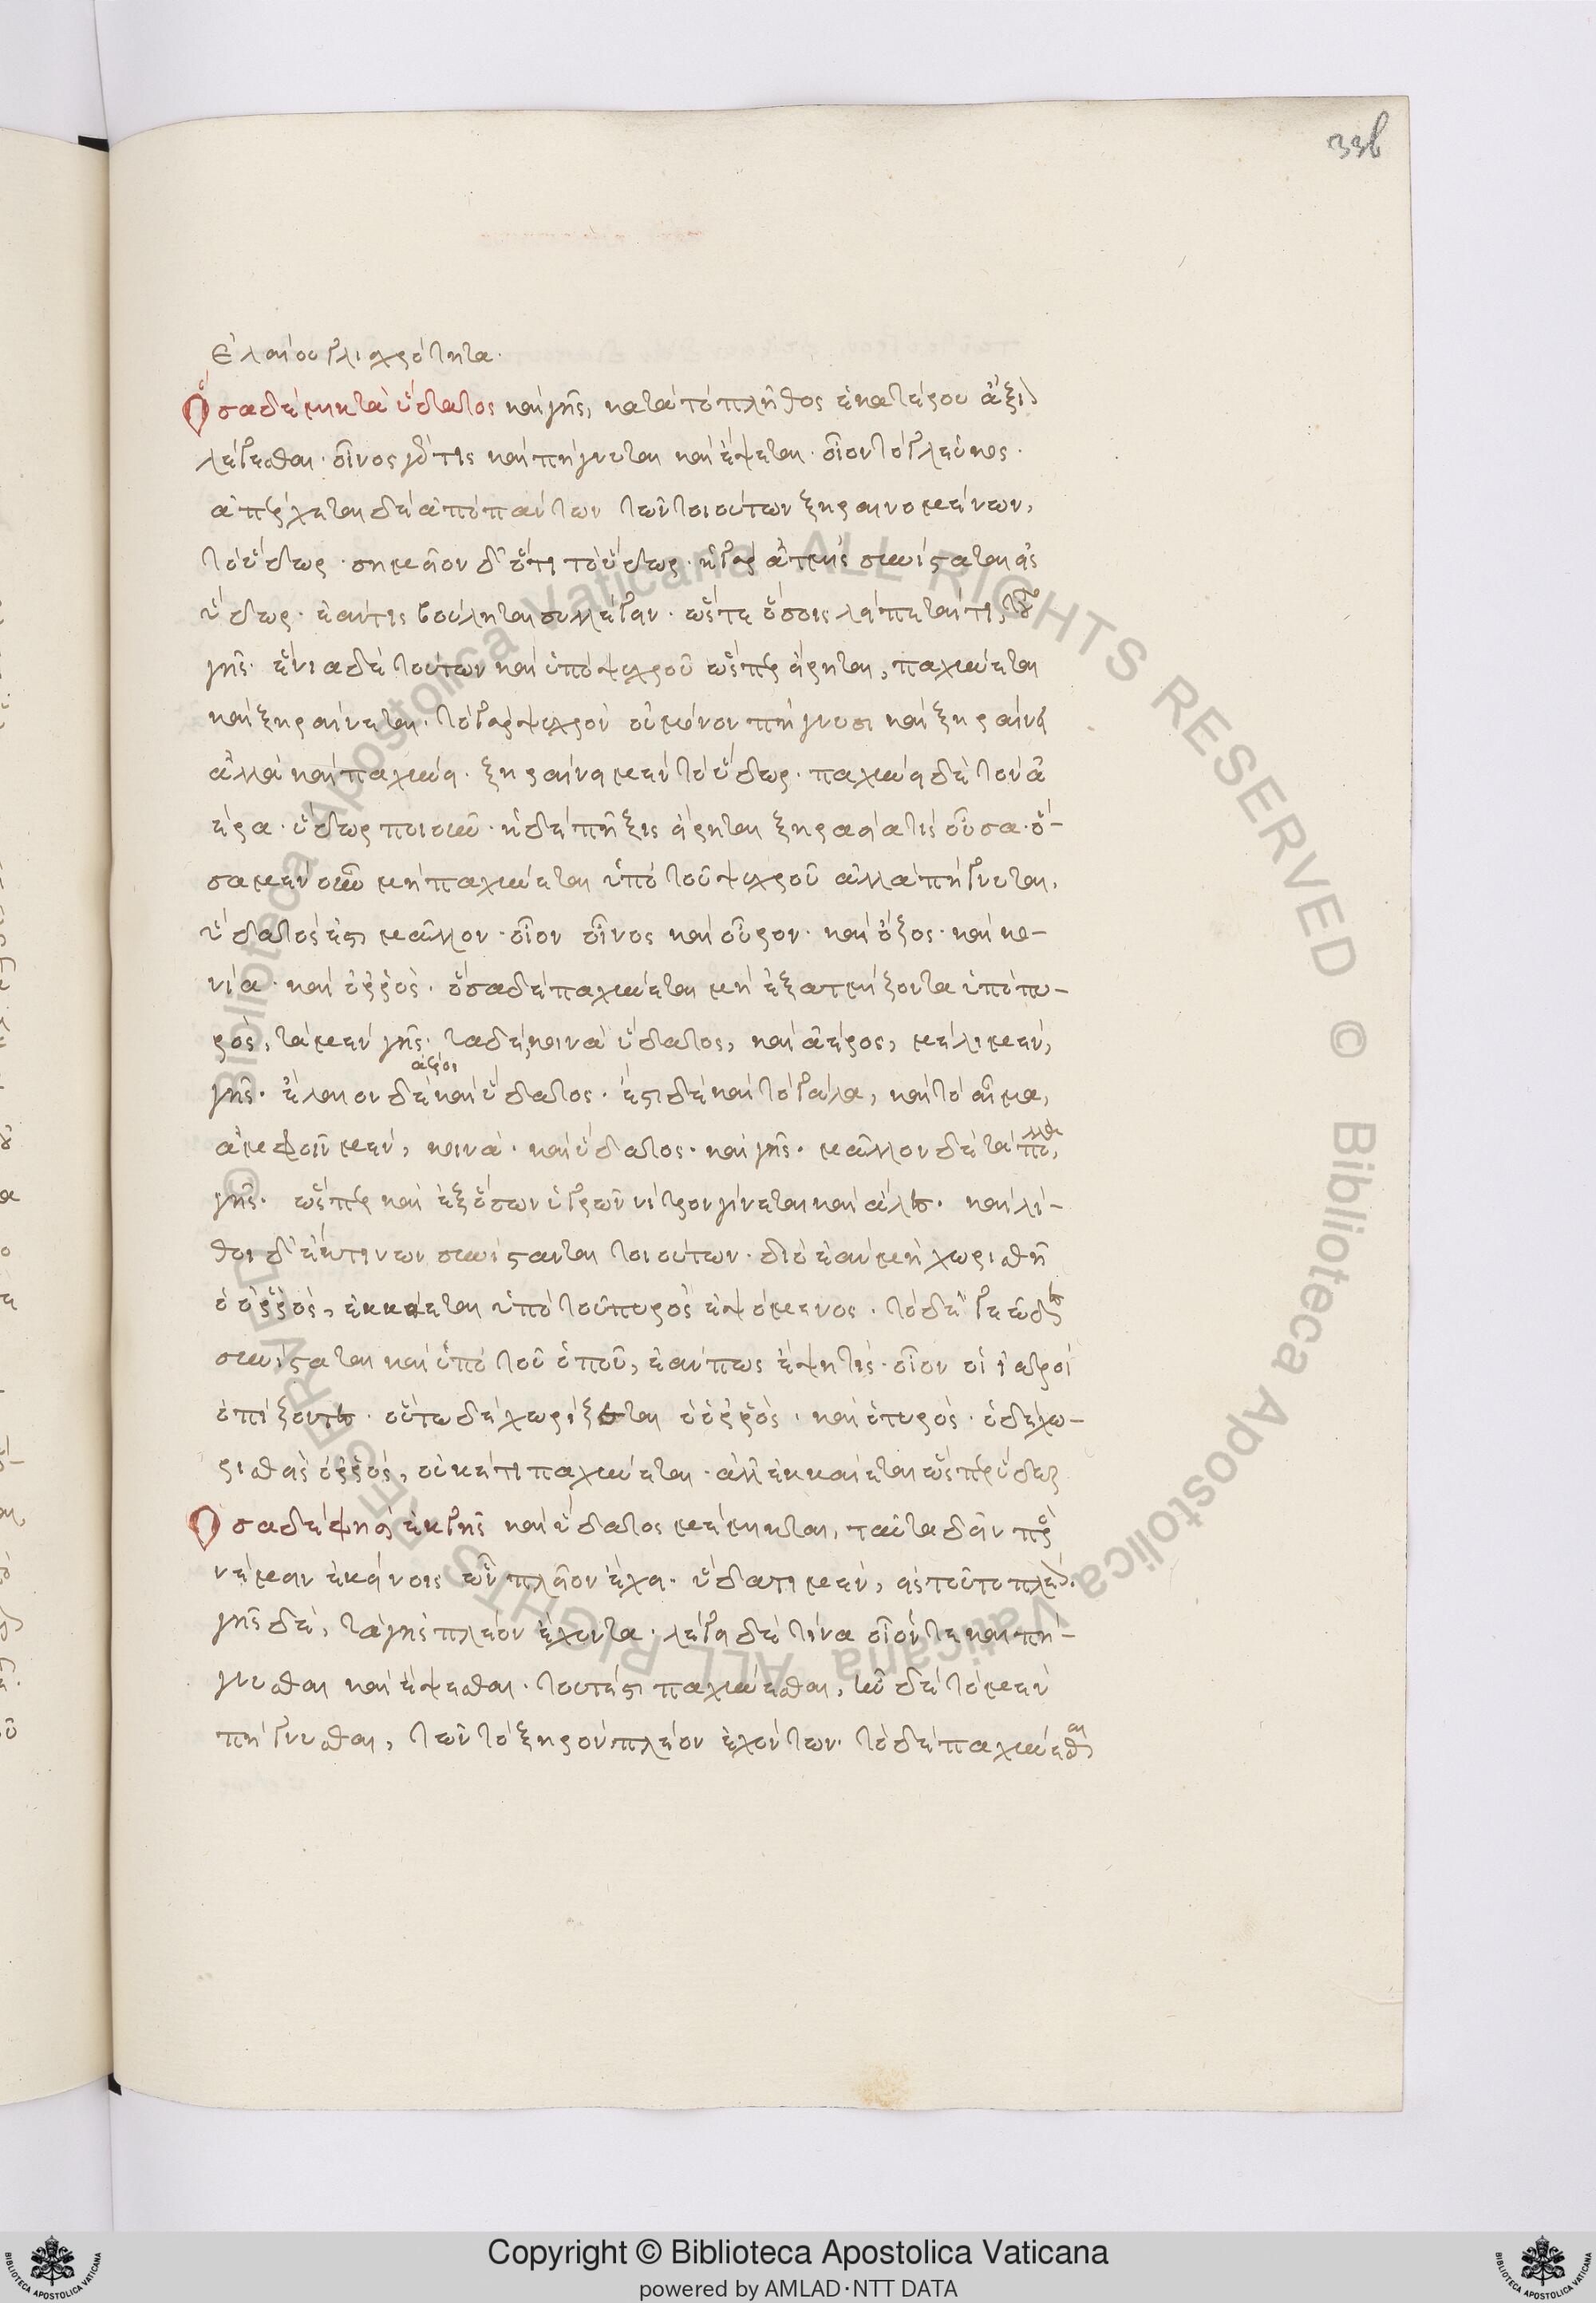 338
ἐλαίου γλισχρότητα.
Ὅσα δὲ μικτὰ ὕδατος καὶ γῆς, κατὰ τὸ πλῆθος ἑκατέρου ἄξιον
λέγεσθαι. οἶνος γάρ τις καὶ πήγνυται καὶ ἕψεται. οἷον τὸ γλεῦκος.
ἀπέρχεται δὲ ἀπὸ πάντων τῶν τοιούτων ξηραινομένων,
τὸ ὕδωρ. σημεῖον δ' ὅτι τὸ ὕδωρ. ἡ γὰρ ἀτμὶς συνίσταται εἰς
ὕδωρ. ἐάν τις βούληται συλλέγειν. ὥστε ὅσοις λείπεταί τι, τοῦτο
γῆς. ἔνια δὲ τούτων καὶ ὑπὸ ψυχροῦ ὥσπερ εἴρηται, παχύνεται
καὶ ξηραίνεται. τὸ γὰρ ψυχρὸν οὐ μόνον πήγνυσι καὶ ξηραίνει
ἀλλὰ καὶ παχύνει. ξηραίνει μὲν τὸ ὕδωρ. παχύνει δὲ τὸν ἀ
έρα. ὕδωρ ποιοῦν. ἡ δὲ πῆξις εἴρηται ξηρασία τις οὖσα. ὅ-
σα μὲν οὖν μὴ παχύνεται ὑπὸ τοῦ ψυχροῦ ἀλλὰ πήγνυται,
ὕδατός ἐστι μᾶλλον. οἷον οἶνος καὶ οὖρον. καὶ ὄξος. καὶ κο-
νία. καὶ ὀρρός. ὅσα δὲ παχύνεται μὴ ἐξατμίζοντα ὑπὸ πυ-
ρὸς, τὰ μὲν γῆς. τὰ δὲ, κοινὰ ὕδατος, καὶ ἀέρος, μέλι μὲν,
ἀέρος
γῆς. ἔλαιον δὲ καὶ ὕδατος. ἔστι δὲ καὶ τὸ γάλα, καὶ τὸ αἷμα,
ἀμφοῖν μὲν, κοινά. καὶ ὕδατος. καὶ γῆς. μᾶλλον δὲ τὰ πολλὰ,
γῆς. ὥσπερ καὶ ἐξ ὅσων ὑγρῶν νίτρον γίνεται καὶ ἅλες. καὶ λί-
θοι δ' ἔκ τινων συνίστανται τοιούτων. διὸ ἐὰν μὴ χωρισθῇ
ὁ ὀρρὸς, ἐκκαίεται ὑπὸ τοῦ πυρὸς ἑψόμενος. τὸ δὲ γεῶδες
συνίσταται καὶ ὑπὸ τοῦ ὀποῦ, ἐάν πως ἕψῃ τις. οἷον οἱ ἰατροὶ
ὀπίζοντες. οὕτω δὲ χωρίζεται ὁ ὀρρός. καὶ ὁ τυρός. ὁ δὲ χω-
ρισθεὶς ὀρρὸς, οὐκέτι παχύνεται. ἀλλ' ἐκκαίεται ὥσπερ ὕδωρ
Ὅσα δέ φησιν ἐκ γῆς καὶ ὕδατος μέμικται, ταῦτα δεῖν προσ
νέμειν ἐκείνοις ὧν πλεῖον ἔχει. ὕδατι μὲν, εἰς τοῦτο πλέον.
γῆς δὲ, τὰ γῆς πλέον ἔχοντα. λέγει δὲ τίνα οἷόν τε καὶ πή-
γνυσθαι καὶ ἕψεσθαι. τουτέστι παχύνεσθαι, ὧν δὲ τὸ μὲν
πήγνυσθαι, τῶν τὸ ξηρὸν πλέον ἐχόντων. τὸ δὲ παχύνεσθαι
© Biblioteca Apostolica Vaticana ALL RIGHTS RESERVED © Biblioteca Apostolica Vaticana ALL RIGHTS RESERVED
Copyright © Biblioteca Apostolica Vaticana
powered by AMLAD·NTT DATA